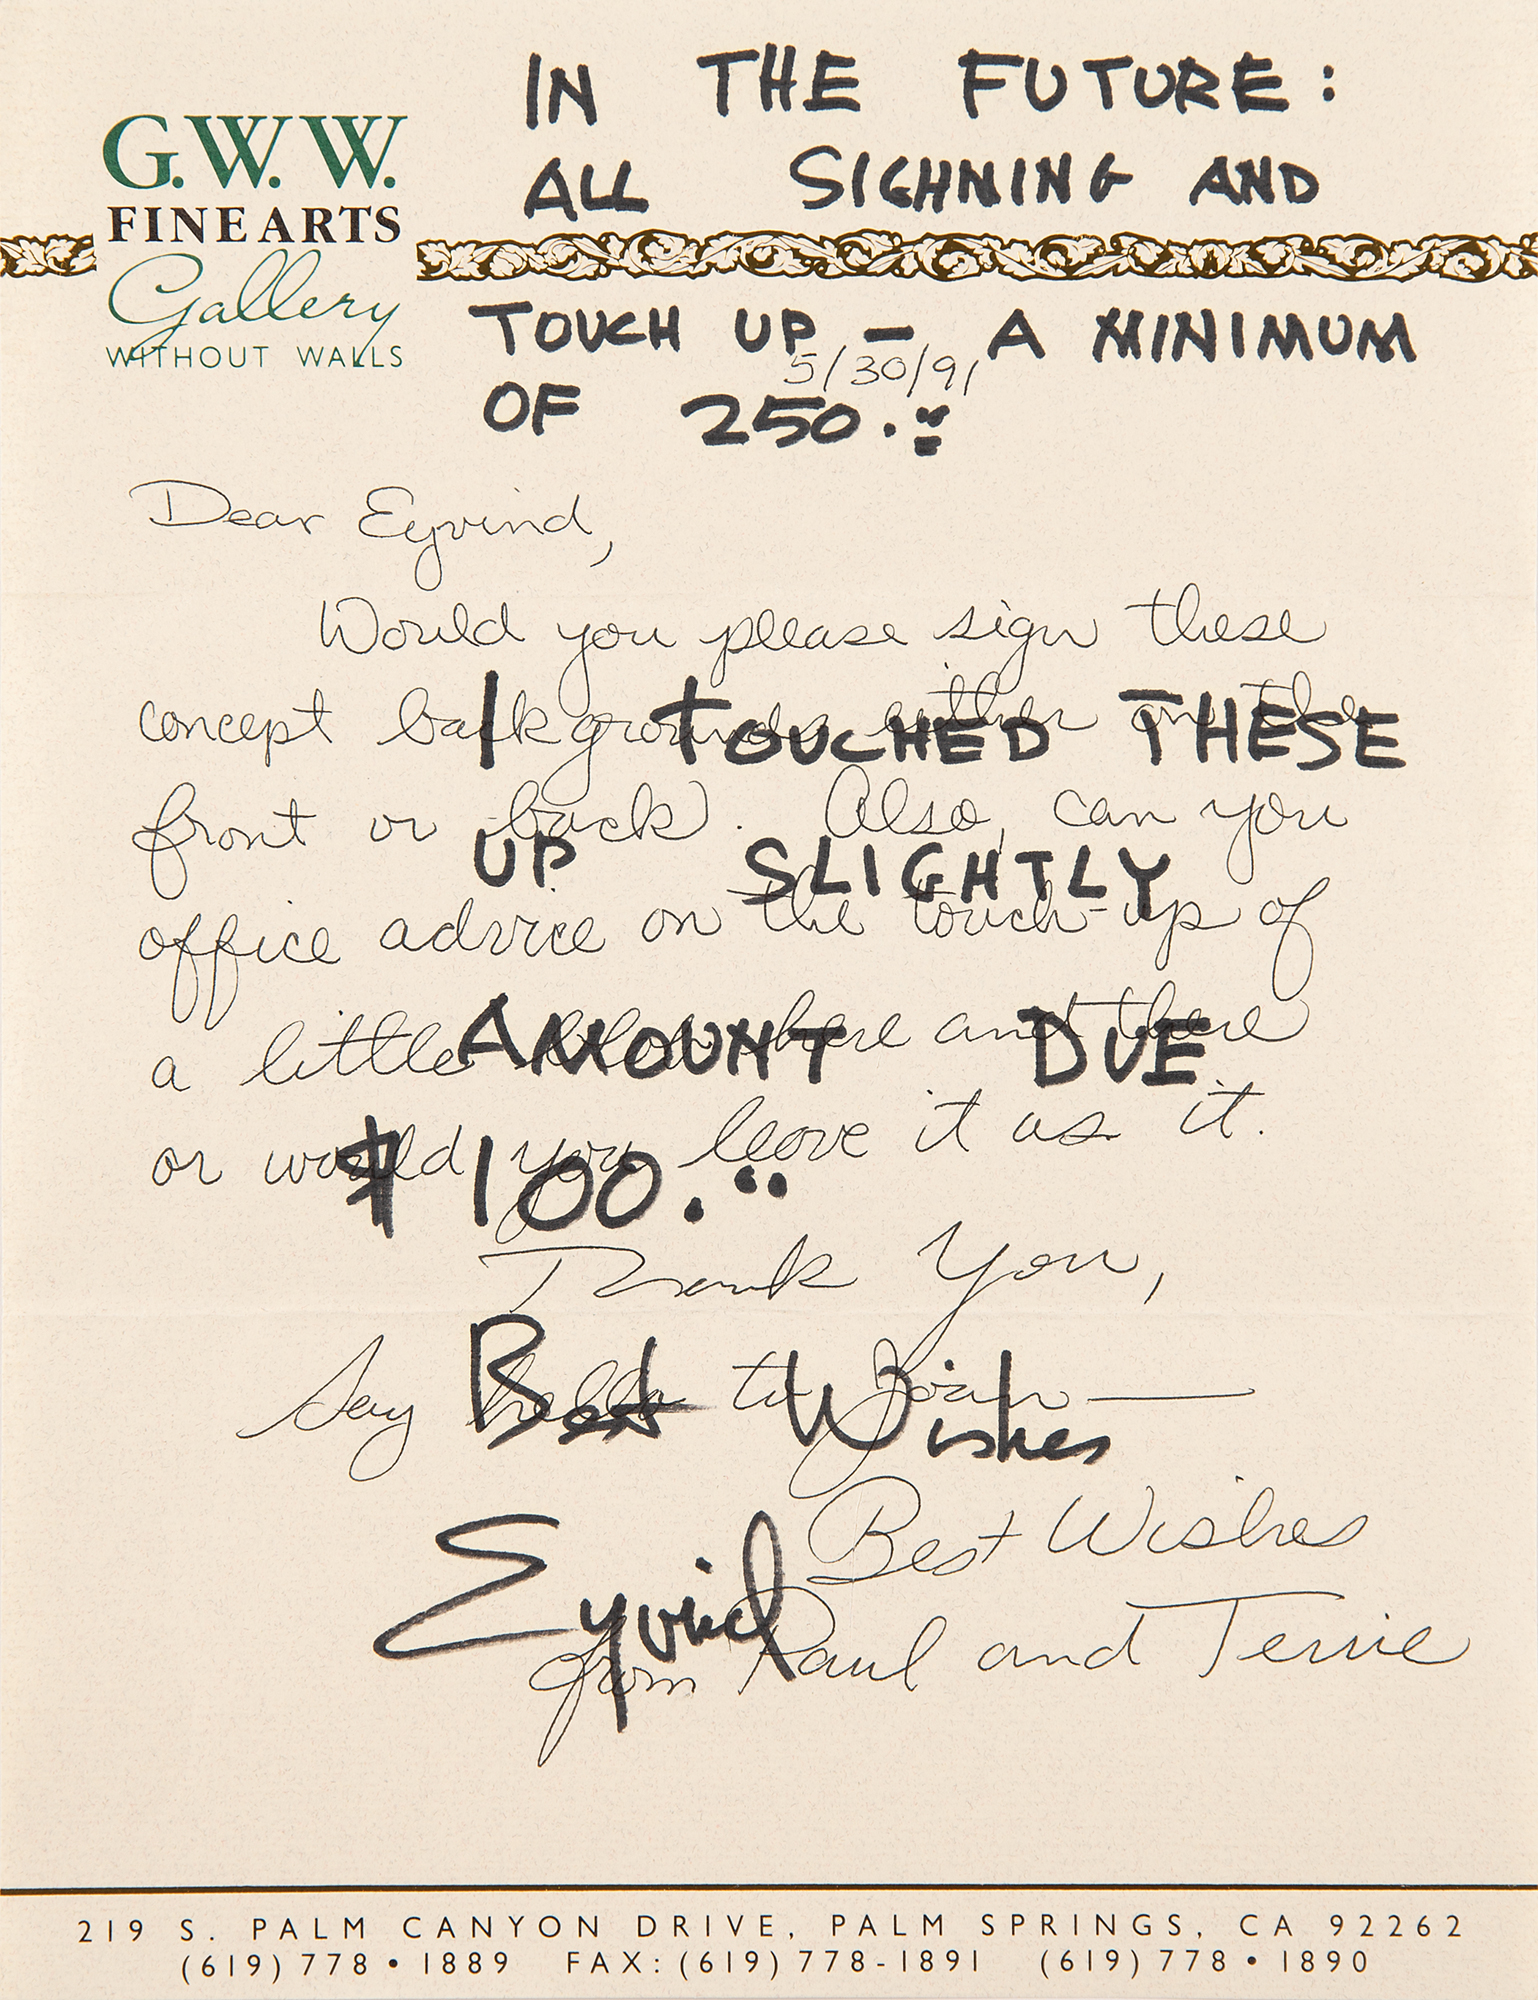 IN THE FUTURE:
G.W.W.
ALL SIGHNING AND
FINE ARTS
Gallery
WITHOUT WALLS
TOUCH UP – A MINIMUM
5/30/91
OF 250.00
Dear Eyvind,
Would you please sign these
concept backgrounds either on the
I TOUCHED THESE
front or back). Also, can you
UP SLIGHTLY
office advice on the touch-up of
a little here and there
AMOUNT DUE
or would you leove it as it.
$100.00
Thank You,
Say hello to Joan —
Best Wishes
Best Wishes
Eyvind
from Paul and Terrie
219 S. PALM CANYON DRIVE, PALM SPRINGS, CA 92262
(619) 778 • 1889 FAX: (619) 778-1891 (619) 778 • 1890